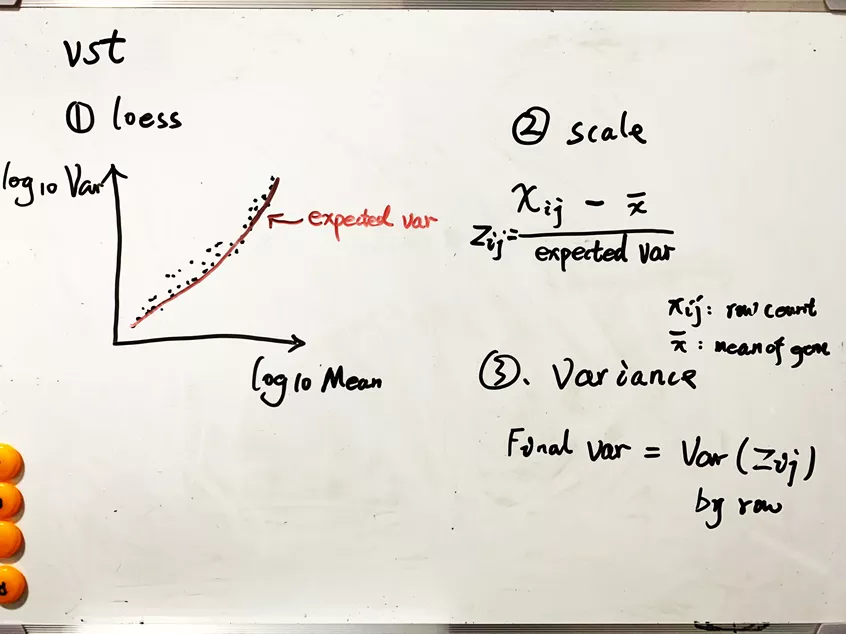 vst
① loess
log10 Var
expected var
log10 Mean
② scale
Zij = (xij - x̄) / expected var
xij: row count
x̄: mean of gene
③. Variance
Final var = Var (Zij)
by row